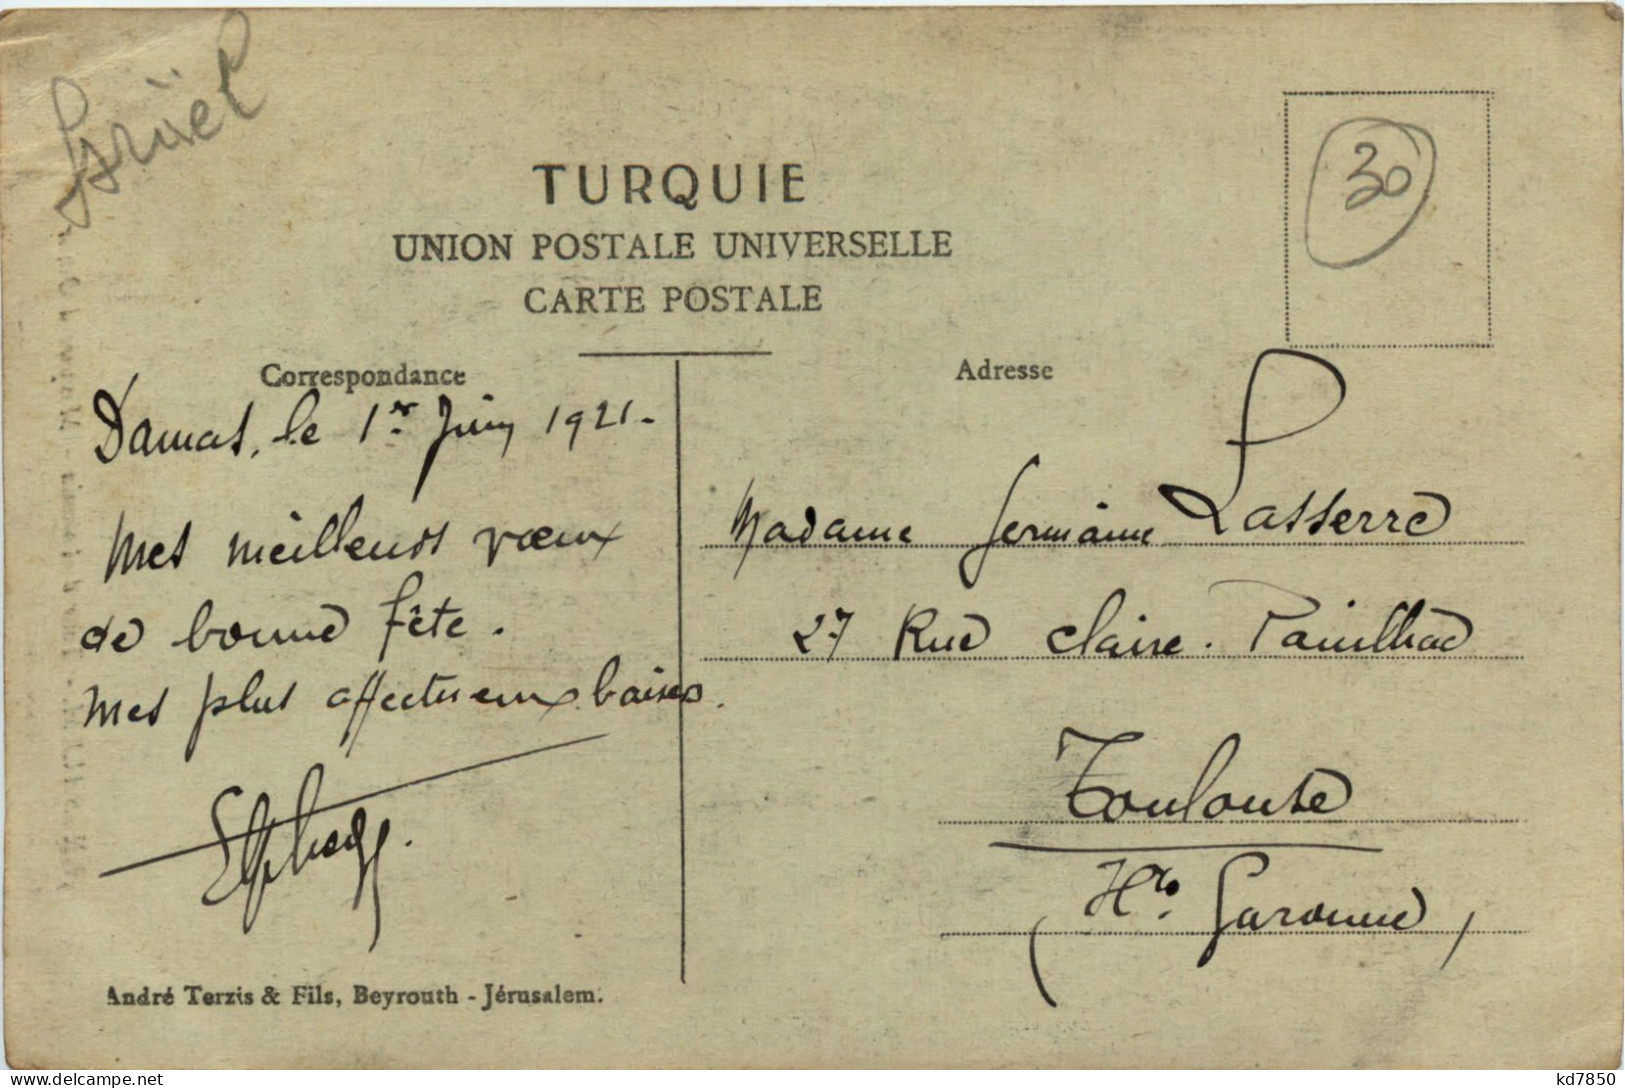 Israël
30
TURQUIE
UNION POSTALE UNIVERSELLE
CARTE POSTALE
Correspondance
Adresse
Damas, le 1er Juin 1921.
Mes meilleurs vœux
de bonne fête.
Mes plus affectueux baisers.
Madame Germaine Lasserre
27 Rue Claire. Pauilhac
Toulouse
(Hte. Garonne)
André Terzis & Fils, Beyrouth - Jérusalem.
https://www.delcampe.net
kd7850